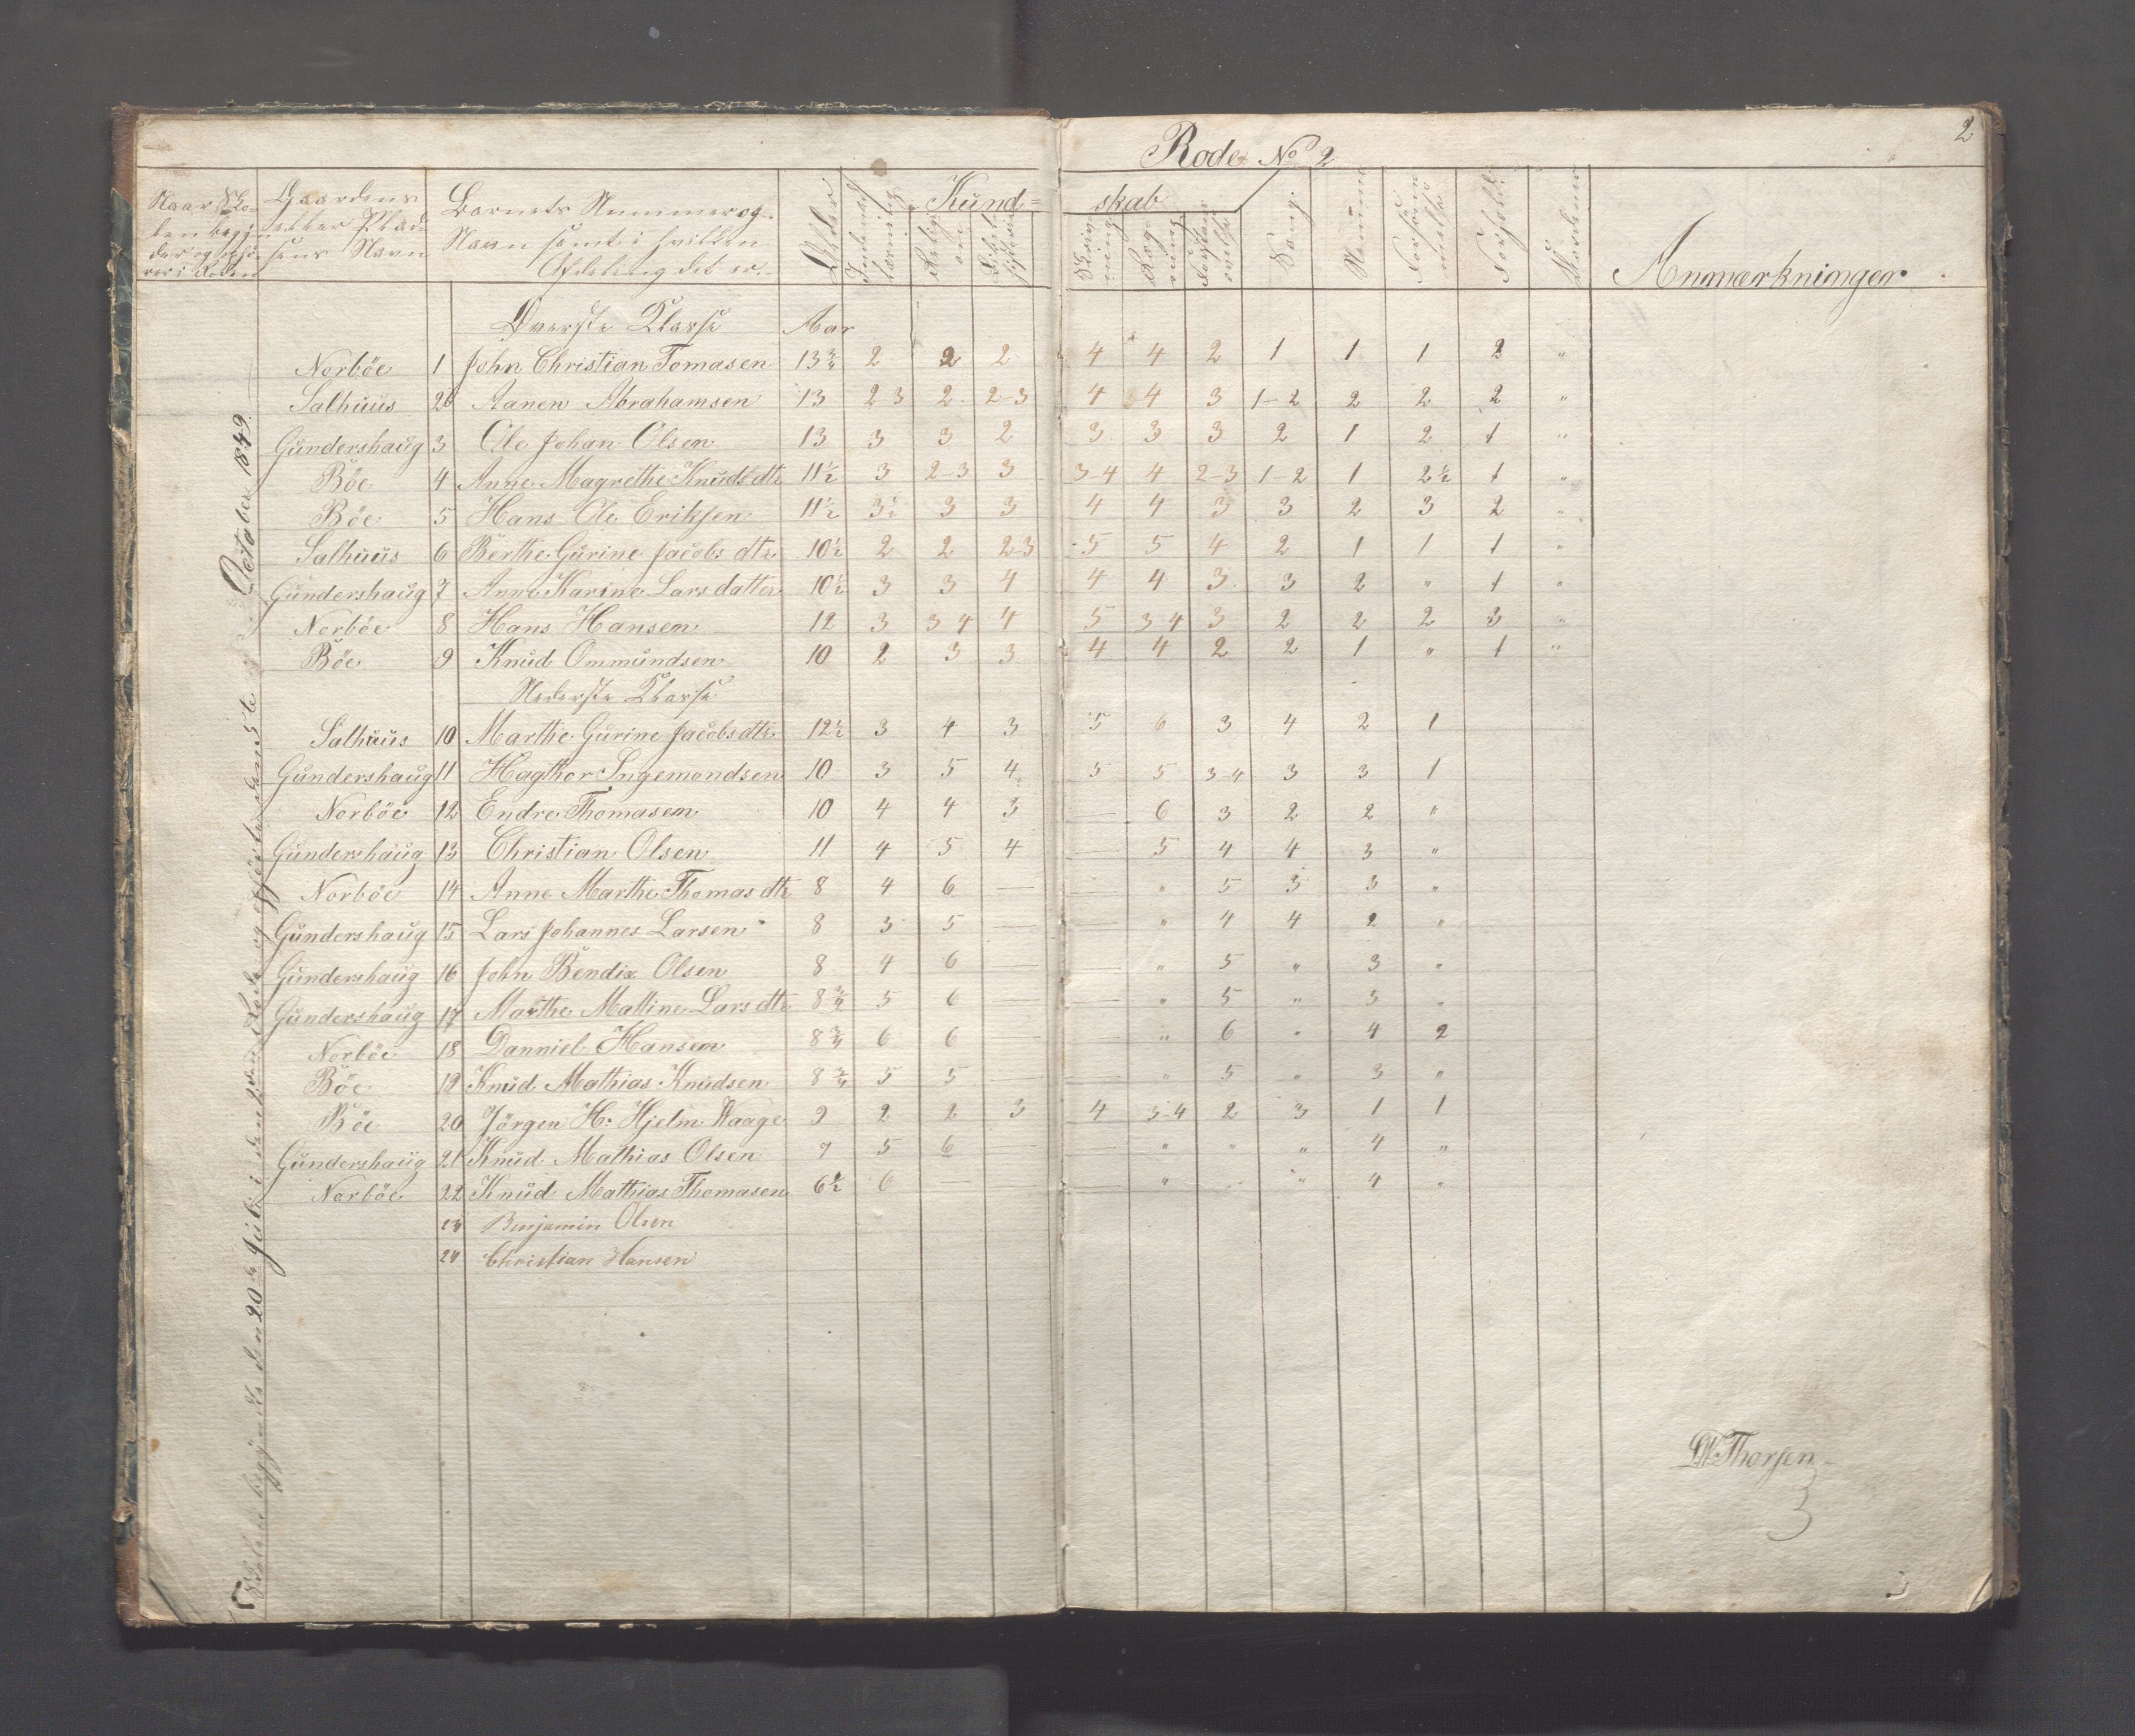 2
Rode No 2
Naar Sko-
len begyn
der og ophö
rer i Roden
Gaardens
eller Plad-
sens Navn
Barnets Nummer og
Navn samt i hvilken
Afdeling det er.
Alder
Kund=
skab
Religi
on
Skriv
ning
Reg
ning
Sang.
Anmærkninger.
October 1849.
Överste Classe Aar
Norböe 1 John Christian Tomasen 13 3/4 2 2 2 4 4 2 1 1 1 2 "
Salhuus 2 Aanen Abrahamsen 13 2 3 2 2-3 4 4 3 1-2 2 2 2 "
Gundershaug 3 Ole Johan Olsen 13 3 3 2 3 3 3 2 1 2 1 "
Böe 4 Anne Magrethe Knudsdtr 11 1/2 3 2-3 3 3-4 4 2-3 1-2 1 2 1/2 1 "
Böe 5 Hans Ole Eriksen 11 1/2 3 1/2 3 3 4 4 3 3 2 3 2 "
Salhuus 6 Berthe Gurine Jacobsdtr 10 1/2 2 2 2 3 5 5 4 2 1 1 1 "
Gundershaug 7 Anne Karine Larsdatter 10 1/2 3 3 4 4 4 3 3 2 " 1 "
Norböe 8 Hans Hansen 12 3 3 4 4 5 3 4 3 2 2 2 3 "
Böe 9 Knud Ommundsen 10 2 3 3 4 4 2 2 1 " 1 "
Nederste Classe
Salhuus 10 Marthe Gurine Jacobsdtr 12 1/2 3 4 3 5 6 3 4 2 1
Gundershaug 11 Hagthor Ingemondsen 10 3 5 4 5 5 3-4 3 3 1
Norböe 12 Endre Thomasen 10 4 4 3 — 6 3 2 2 "
Gundershaug 13 Christian Olsen 11 4 5 4 — 5 4 4 3 "
Norböe 14 Anne Marthe Thomasdtr 8 4 6 — — " 5 3 3 "
Gundershaug 15 Lars Johannes Larsen 8 3 5 — — " 4 4 2 "
Gundershaug 16 John Bendix Olsen 8 4 6 — — " 5 " 3 "
Gundershaug 17 Marthe Malline Larsdtr 8 3/4 5 6 — — " 5 " 3 "
Norböe 18 Danniel Hansen 8 3/4 6 6 — — " 6 " 4 2
Böe 19 Knud Mathias Knudsen 8 3/4 5 5 — — " 5 " 3 "
Böe 20 Jörgen H: Hjelm Waage 9 2 2 3 4 3-4 2 3 1 1
Gundershaug 21 Knud Mathias Olsen 7 5 6 — — " " " 4 "
Norböe 22 Knud Mathias Thomasen 6 1/2 6 — — — " " " 4 "
23 Benjamin Olsen
24 Christian Hansen
Thorsen
3